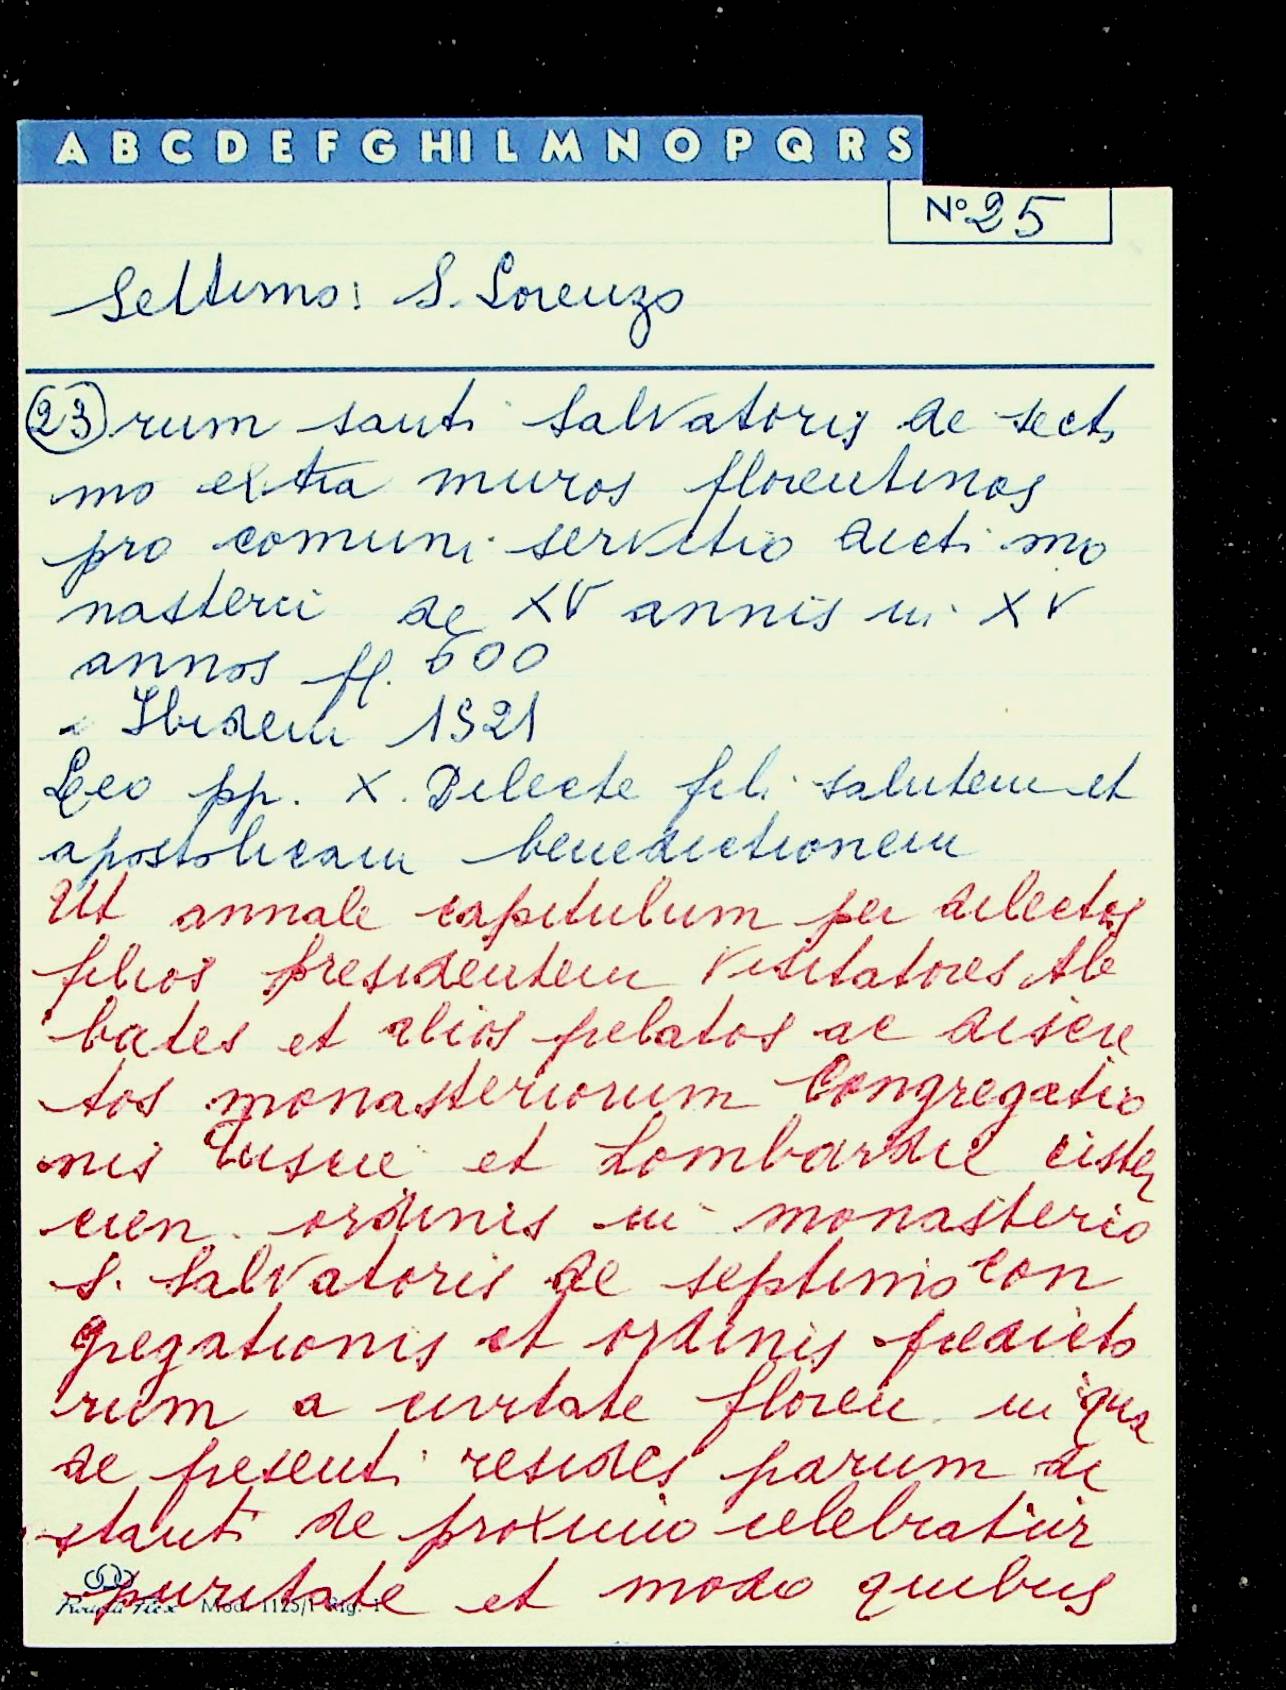 A B C D E F G H I L M N O P Q R S
N° 25
Settimo: S. Lorenzo
23 rum santi Salvatoris de secti
mo extra muros florentinos
pro comuni servitio dicti mo
nasterii de XV annis in XV
annos fl. 600
Ibidem 1521
Leo pp. X. Dilecte fili salutem et
apostolicam benedictionem
Ut annale capitulum per dilectos
filios presidentem Visitatores Ab
bates et alios prelatos ac discre
tos monasteriorum Congregatio
nis Tuscie et Lombardie cister
cien. ordinis in monasterio
S. Salvatoris de septimo con
gregationis et ordinis predicto
rum a civitate floren. in qua
de presenti resides parum di
stanti de proximo celebratur
puritate et modo quibus
Mod. 1125/1 Rig. 1